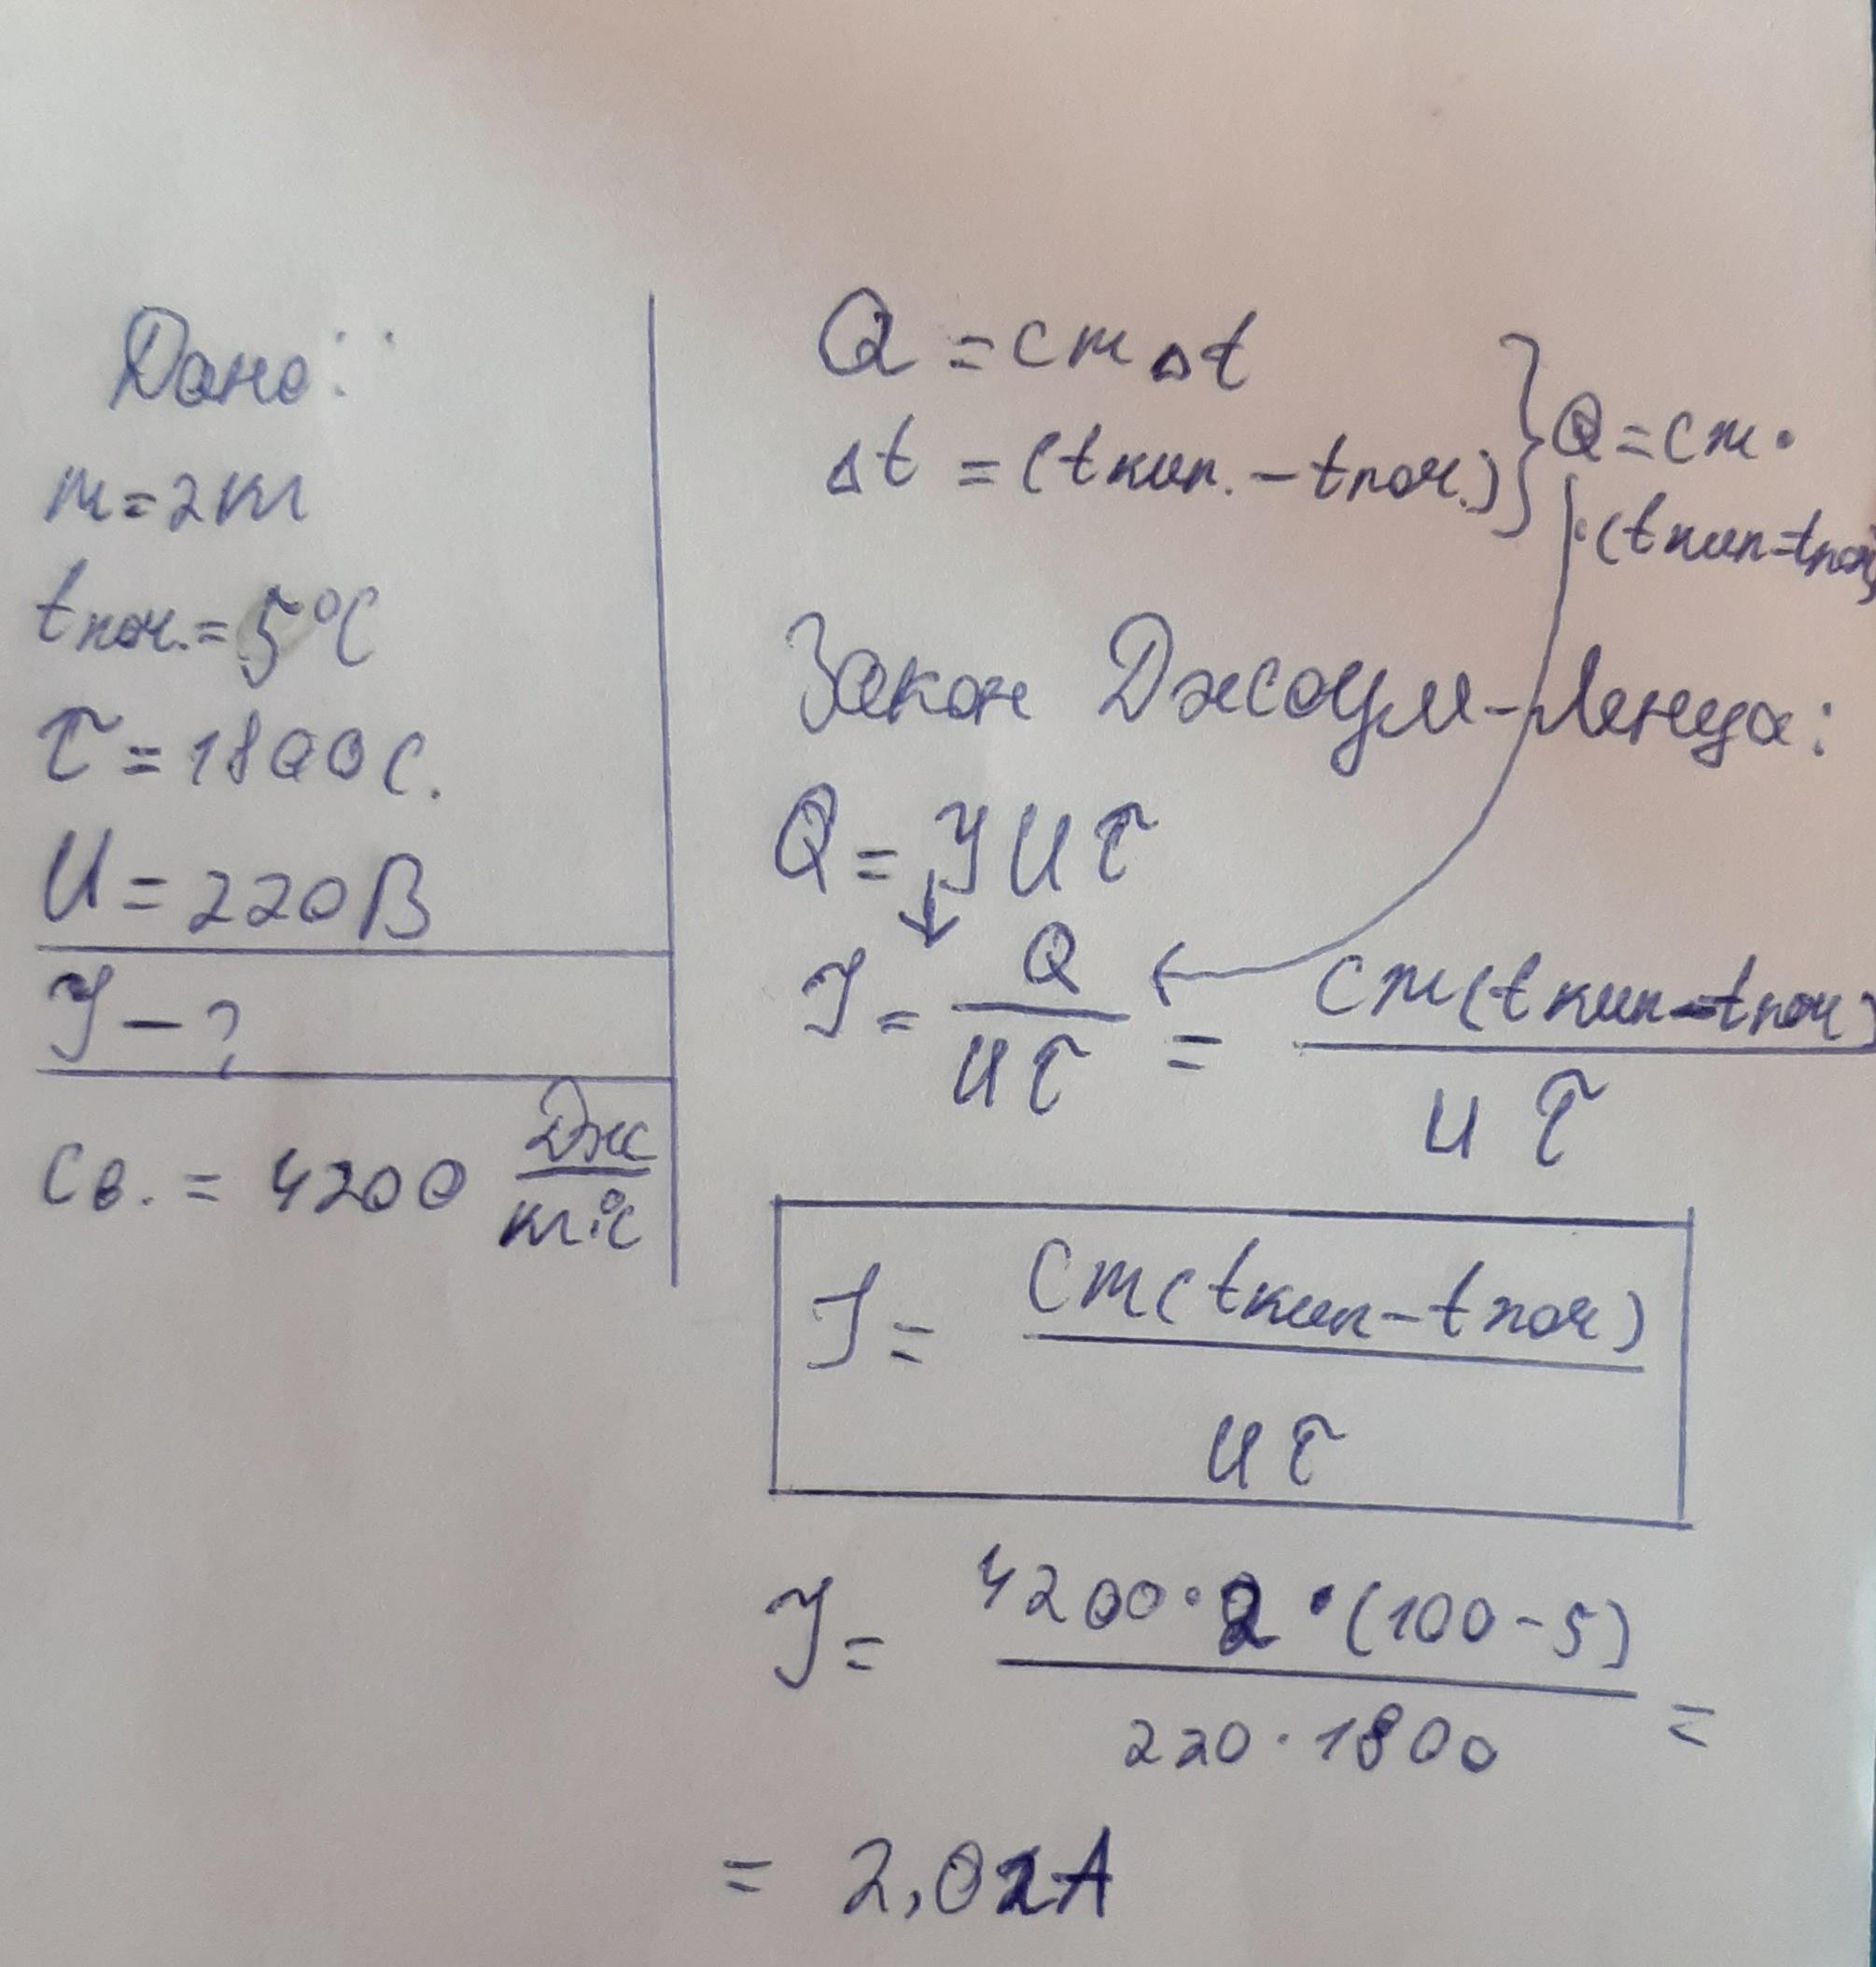 Дано:
m = 2 кг
tпоч. = 5 °C
τ = 1800 с.
U = 220 В
J - ?
Cв. = 4200 Дж/кг·°C
Q = cm Δt
Δt = (tкип. - tпоч.)
Q = cm ·
· (tкип - tпоч)
Закон Джоуля-Ленца:
Q = J U τ
J = Q/Uτ = cm(tкип - tпоч)/Uτ
J = cm(tкип - tпоч)/Uτ
J = 4200 · 2 · (100 - 5)/220 · 1800 =
= 2,02 A